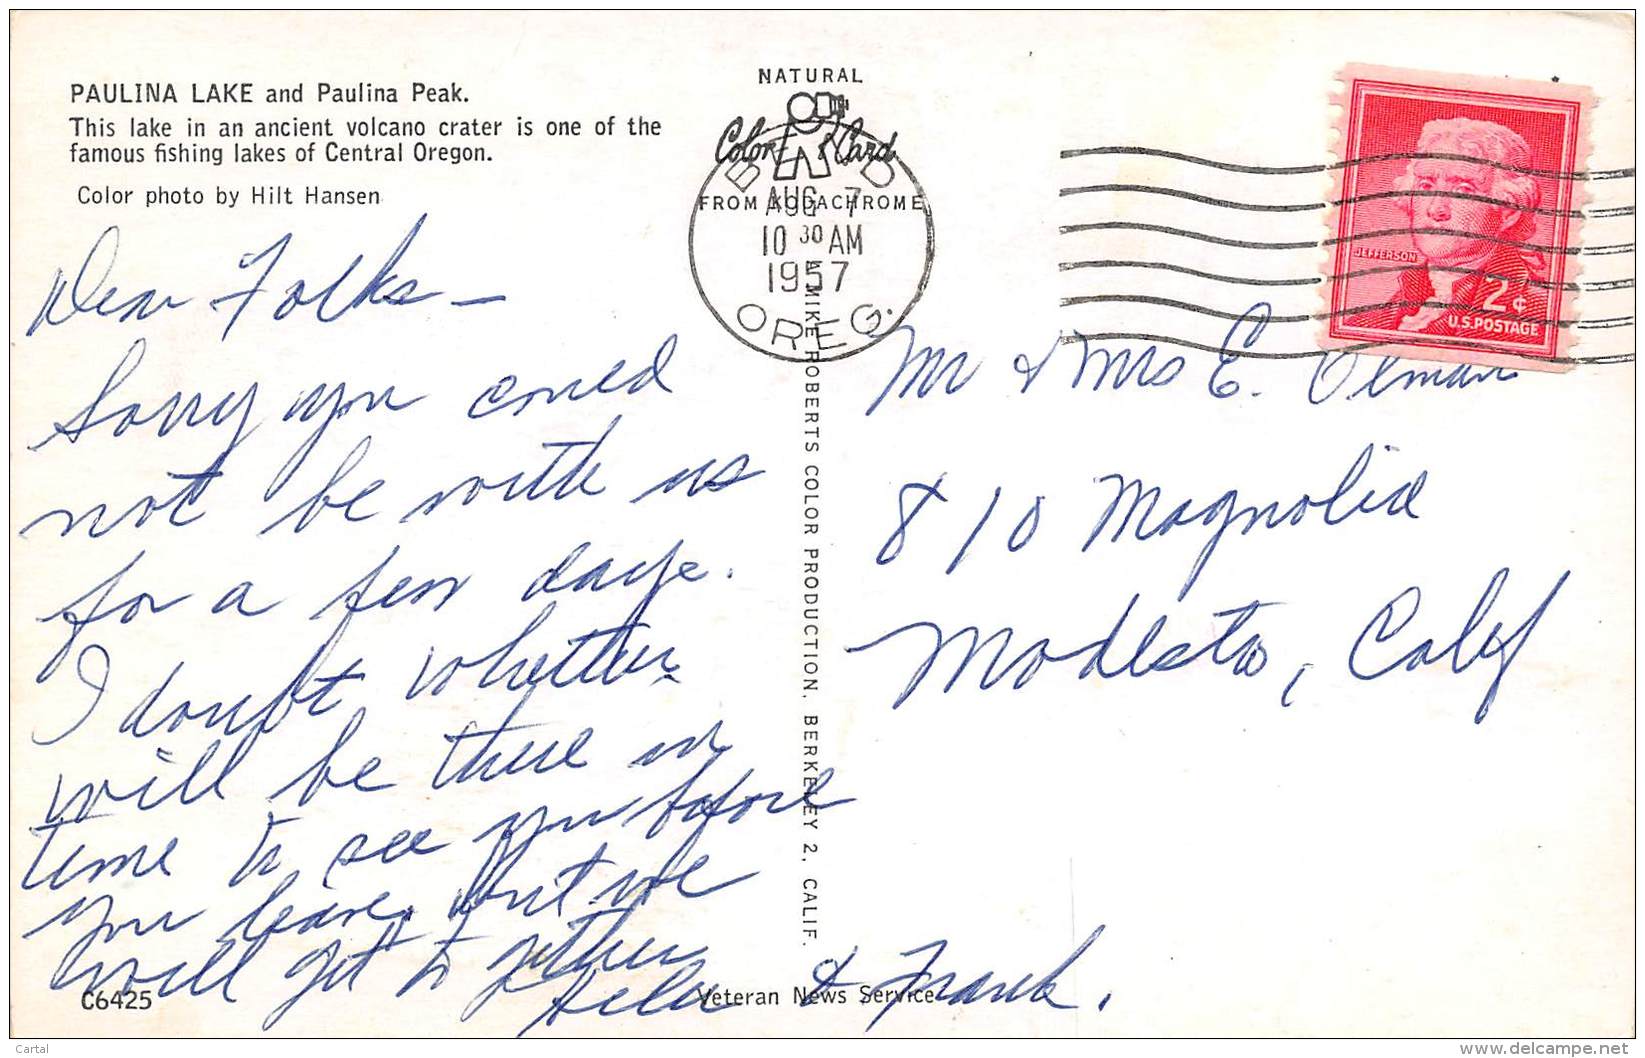 PAULINA LAKE and Paulina Peak.
This lake in an ancient volcano crater is one of the
famous fishing lakes of Central Oregon.
Color photo by Hilt Hansen
NATURAL
Color Card
FROM KODACHROME
BEND
AUG 7
10 30 AM
1957
OREG.
JEFFERSON
2¢
U.S. POSTAGE
Dear Folks —
Sorry you could
not be with us
for a few days.
I doubt whether
will be there in
time to see you before
you leave, but we
will get together
& Frank.
Mr & Mrs E.
810 Magnolia
Modesto, Calif
MIKE ROBERTS COLOR PRODUCTION, BERKELEY 2, CALIF.
C6425
Veteran News Service
Cartal
www.delcampe.net